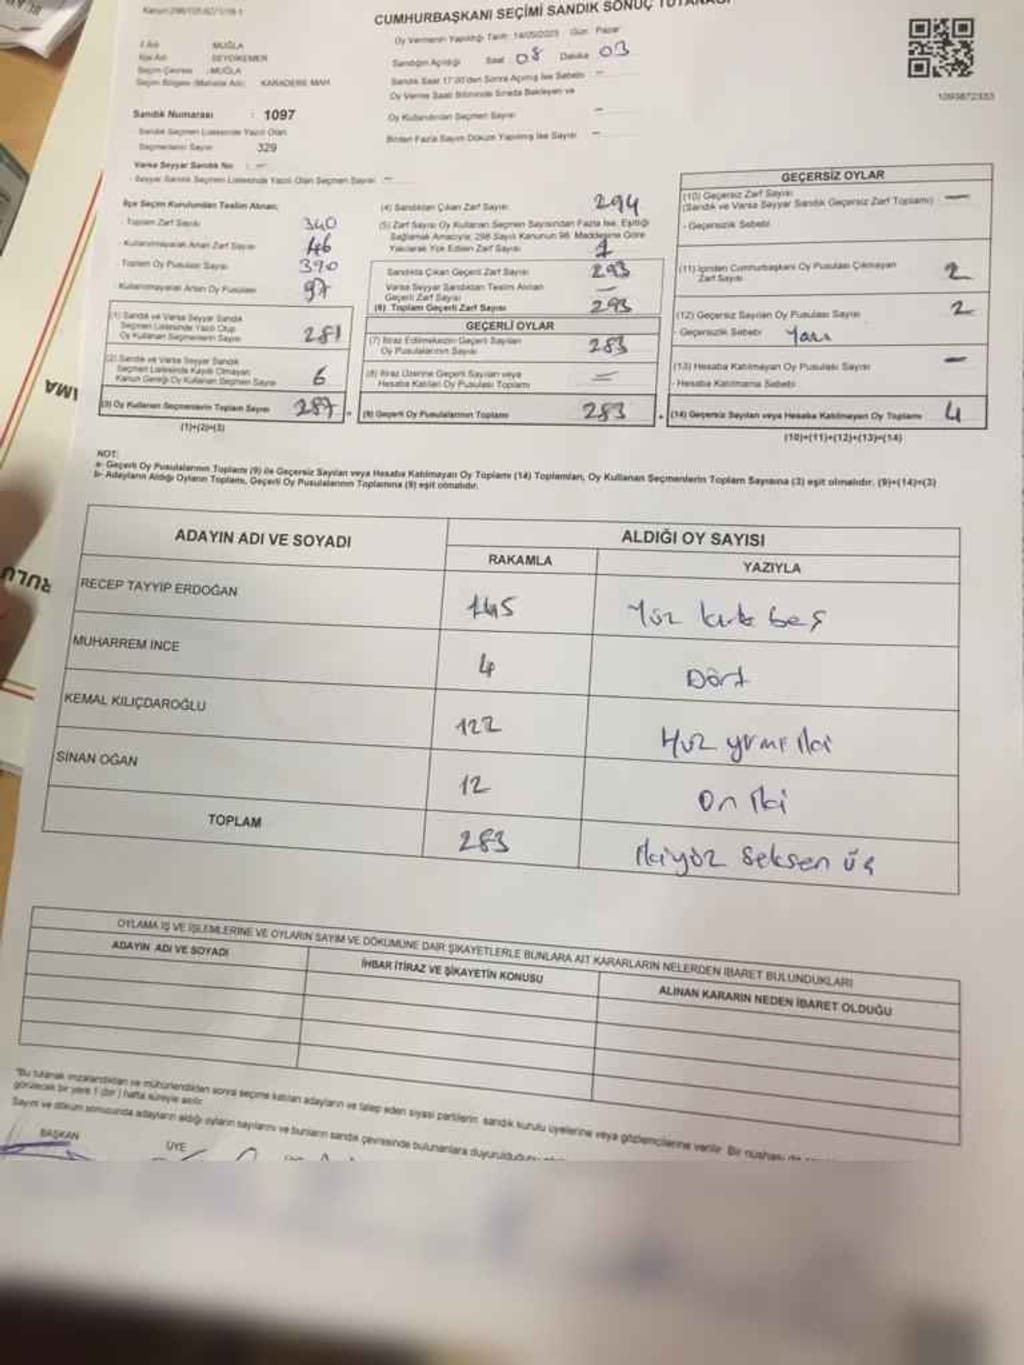 CUMHURBAŞKANI SEÇİMİ SANDIK SONUÇ TUTANAĞI
Oy Vermenin Yapıldığı Tarih: 14/05/2023 Gün: Pazar
İl Adı : MUĞLA
İlçe Adı : SEYDİKEMER
Seçim Çevresi : MUĞLA
Seçim Bölgesi (Mahalle Adı) : KARADERE MAH.
Sandığın Açıldığı Saat 08 Dakika 03
Sandık Saat 17:00'den Sonra Açılmış İse Sebebi –
Oy Verme Saati Bitiminde Sırada Bekleyen ve
Oy Kullandırılan Seçmen Sayısı –
Birden Fazla Sayım Döküm Yapılmış İse Sayısı –
1093872333
Sandık Numarası : 1097
Sandık Seçmen Listesinde Yazılı Olan
Seçmenlerin Sayısı 329
Varsa Seyyar Sandık No : –
- Seyyar Sandık Seçmen Listesinde Yazılı Olan Seçmen Sayısı –
İlçe Seçim Kurulundan Teslim Alınan;
- Toplam Zarf Sayısı 340
- Kullanılmayarak Artan Zarf Sayısı 46
- Toplam Oy Pusulası Sayısı 390
- Kullanılmayarak Artan Oy Pusulası 97
(1) Sandık ve Varsa Seyyar Sandık
Seçmen Listesinde Yazılı Olup
Oy Kullanan Seçmenlerin Sayısı 281
(2) Sandık ve Varsa Seyyar Sandık
Seçmen Listesinde Kayıtlı Olmayan
Kanun Gereği Oy Kullanan Seçmen Sayısı 6
(3) Oy Kullanan Seçmenlerin Toplam Sayısı 287
(1)+(2)=(3)
(4) Sandıktan Çıkan Zarf Sayısı 294
(5) Zarf Sayısı Oy Kullanan Seçmen Sayısından Fazla İse, Eşitliği
Sağlamak Amacıyla; 298 Sayılı Kanunun 98. Maddesine Göre
Yakılarak Yok Edilen Zarf Sayısı 1
Sandıkta Çıkan Geçerli Zarf Sayısı 293
Varsa Seyyar Sandıktan Teslim Alınan
Geçerli Zarf Sayısı –
(6) Toplam Geçerli Zarf Sayısı 293
GEÇERLİ OYLAR
(7) İtiraz Edilmeksizin Geçerli Sayılan
Oy Pusulalarının Sayısı 283
(8) İtiraz Üzerine Geçerli Sayılan veya
Hesaba Katılan Oy Pusulası Toplamı =
(9) Geçerli Oy Pusulalarının Toplamı 283
GEÇERSİZ OYLAR
(10) Geçersiz Zarf Sayısı
(Sandık ve Varsa Seyyar Sandık Geçersiz Zarf Toplamı) –
- Geçersizlik Sebebi
(11) İçinden Cumhurbaşkanı Oy Pusulası Çıkmayan
Zarf Sayısı 2
(12) Geçersiz Sayılan Oy Pusulası Sayısı 2
- Geçersizlik Sebebi
(13) Hesaba Katılmayan Oy Pusulası Sayısı –
- Hesaba Katılmama Sebebi
(14) Geçersiz Sayılan veya Hesaba Katılmayan Oy Toplamı 4
(10)+(11)+(12)+(13)=(14)
NOT:
a- Geçerli Oy Pusulalarının Toplamı (9) ile Geçersiz Sayılan veya Hesaba Katılmayan Oy Toplamı (14) Toplamları, Oy Kullanan Seçmenlerin Toplam Sayısına (3) eşit olmalıdır. (9)+(14)=(3)
b- Adayların Aldığı Oyların Toplamı, Geçerli Oy Pusulalarının Toplamına (9) eşit olmalıdır.
ADAYIN ADI VE SOYADI
ALDIĞI OY SAYISI
RAKAMLA YAZIYLA
RECEP TAYYİP ERDOĞAN 145 Yüz kırk beş
MUHARREM İNCE 4 Dört
KEMAL KILIÇDAROĞLU 122 Yüz yirmi iki
SİNAN OĞAN 12 On iki
TOPLAM 283 İkiyüz seksen üç
OYLAMA İŞ VE İŞLEMLERİNE VE OYLARIN SAYIM VE DÖKÜMÜNE DAİR ŞİKAYETLERLE BUNLARA AİT KARARLARIN NELERDEN İBARET BULUNDUKLARI
ADAYIN ADI VE SOYADI
İHBAR İTİRAZ VE ŞİKAYETİN KONUSU
ALINAN KARARIN NEDEN İBARET OLDUĞU
"Bu tutanak imzalandıktan ve mühürlendikten sonra seçime katılan adayların ve talep eden siyasi partilerin sandık kurulu üyelerine veya gözlemcilerine verilir. Bir nüshası da
görülecek bir yere 1 (bir) hafta süreyle asılır.
Sayım ve döküm sonucunda adayların aldığı oyların sayılarını ve bunların sandık çevresinde bulunanlara duyurulduğunu
BAŞKAN
ÜYE